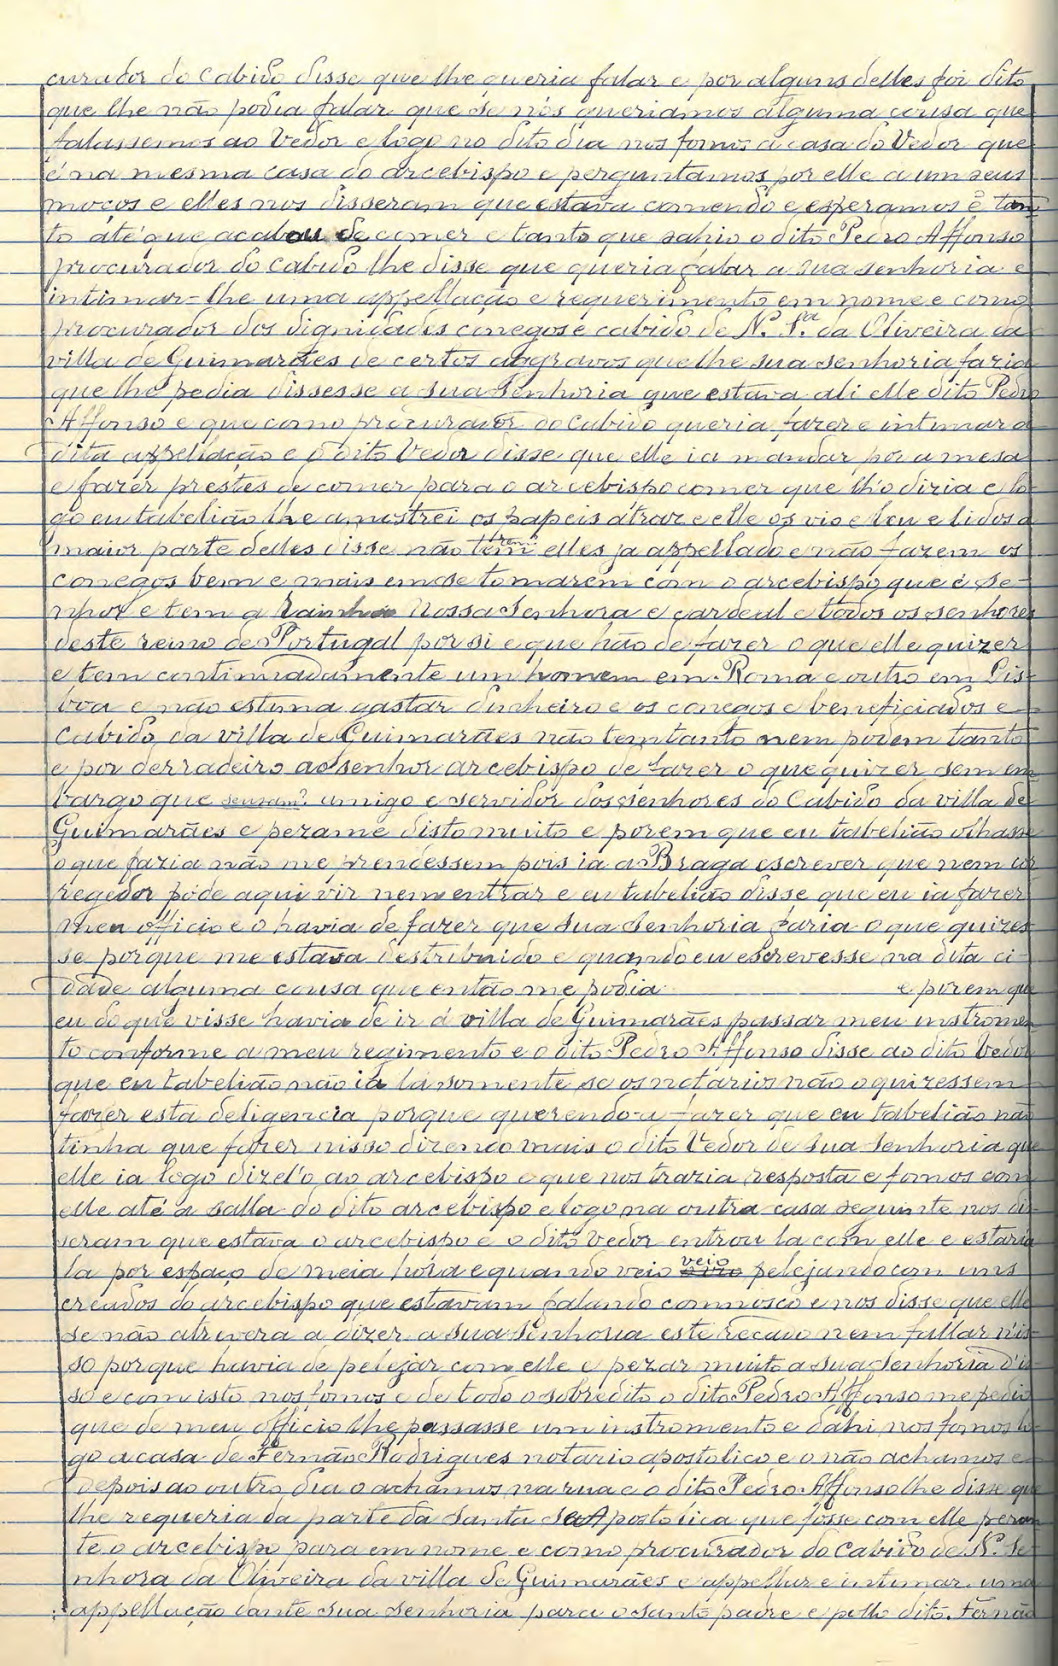 curador do Cabido disse que lhe queria falar e por alguns delles foi dito
que lhe não podia falar que se nós queriamos alguma cousa que
falassemos ao Vedor e logo no dito dia nos fomos a casa do Vedor que
é na mesma casa do arcebispo e perguntamos por elle a um seus
moços e elles nos disseram que estava comendo e esperamos é tan-
to até que acabou de comer e tanto que sahio o dito Pedro Affonso
procurador do Cabido lhe disse que queria falar a sua senhoria e
intimar-lhe uma appellação e requerimento em nome e como
procurador dos dignidades conegos e cabido de N. Sra. da Oliveira da
villa de Guimarães de certos aggravos que lhe sua senhoria fazia
que lhe pedia dissesse a sua senhoria que estava ali elle dito Pedro
Affonso e que como procurador do Cabido queria fazer e intimar a
dita appellação e o dito Vedor disse que elle ia mandar pôr a mesa
e fazer prestes de comer para o arcebispo comer que lh'o diria e lo-
go eu tabelião lhe amostrei os papeis atraz e elle os vio e leu e lidos a
maior parte delles disse não tem elles ja appellado e não fazem os
conegos bem e mais em se tomarem com o arcebispo que é se-
nhor e tem a Rainha Nossa Senhora e cardeal e todos os senhores
deste reino de Portugal por si e que hão de fazer o que elle quizer
e tem continuadamente um homem em Roma e outro em Lis-
boa e não estima gastar dinheiro e os conegos e beneficiados e
Cabido da villa de Guimarães não tem tanto nem podem tanto
e por derradeiro ao senhor arcebispo de fazer o que quizer sem em-
bargo que amigo e servidor dos senhores do Cabido da villa de
Guimarães e peza me disto muito e porem que eu tabelião olhasse
o que fazia não me prendessem pois ia a Braga escrever que nem cor
regedor pode aqui vir nem entrar e eu tabelião disse que eu ia fazer
meu officio e o havia de fazer que sua senhoria faria o que quizes
se porque me estava destribuido e quando eu escrevesse na dita ci-
dade alguma cousa que então me podia e porem que
eu do que visse havia de ir á villa de Guimarães passar meu instromen
to conforme a meu regimento e o dito Pedro Affonso disse ao dito Vedor
que eu tabelião não ia lá somente se os notarios não o quizessem
fazer esta deligencia porque querendo-a fazer que eu tabelião não
tinha que fazer nisso dizendo mais o dito Vedor de sua senhoria que
elle ia logo dizel'o ao arcebispo e que nos trazia resposta e fomos com
elle até a salla do dito arcebispo e logo na outra casa seguinte nos di-
seram que estava o arcebispo e o dito Vedor entrou la com elle e estaria
la por espaço de meia hora e quando veio veio pelejando com uns
creados do arcebispo que estavam falando comnosco e nos disse que elle
se não atrevera a dizer a sua senhoria este recado nem fallar nis-
so porque havia de pelejar com elle e pezar muito a sua senhoria d'is
so e com isto nos fomos e de todo o sobredito o dito Pedro Affonso me pedio
que de meu officio lhe passasse um instromento e dahi nos fomos lo-
go a casa de Fernão Rodrigues notario apostolico e o não achamos e
depois ao outro dia o achamos na rua e o dito Pedro Affonso lhe disse que
lhe requeria da parte da Santa Sé Apostolica que fosse com elle peran
te o arcebispo para em nome e como procurador do Cabido de N. Se-
nhora da Oliveira da villa de Guimarães e appellar e intimar uma
appellação dante sua senhoria para o santo padre e pello dito Fernão